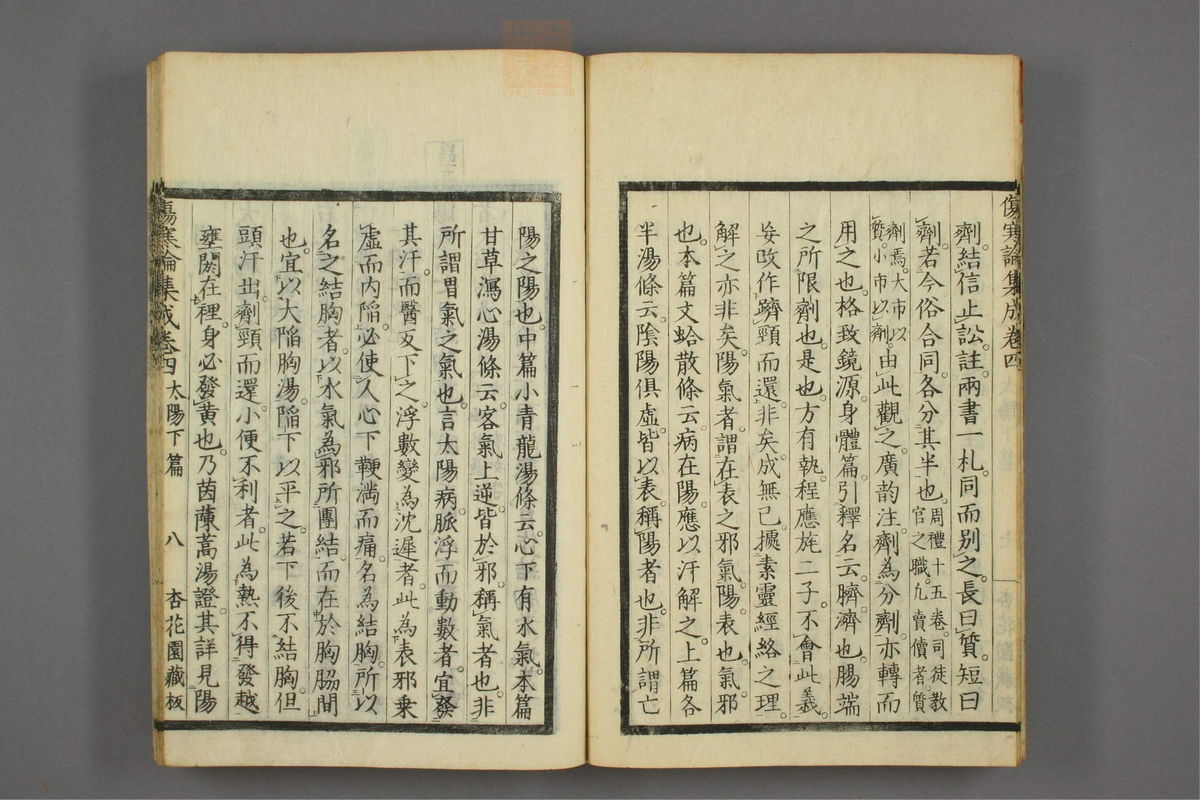 傷寒論集成卷四
劑。結信止訟。註。兩書一札。同而別之。長曰質。短曰
劑。若今俗合同。各分其半也。周禮十五卷。司徒教官之職。凢賣儥者質
劑焉。大市以質。小市以劑。由此觀之。廣韵注。劑為分劑。亦轉而
用之也。格致鏡源。身體篇。引釋名云。臍濟也。腸端
之所限劑也。是也。方有執程應旄二子。不會此義。
妄改作躋頸而還。非矣。成無已據素靈經絡之理。
解之亦非矣。陽氣者。謂在表之邪氣。陽表也。氣邪
也。本篇文蛤散條云。病在陽。應以汗解之。上篇各
半湯條云。陰陽俱虛。皆以表稱陽者也。非所謂亡
陽之陽也。中篇小青龍湯條云。心下有水氣。本篇
甘草瀉心湯條云。客氣上逆。皆於邪稱氣者也。非
所謂胃氣之氣也。言太陽病。脈浮而動數者。宜發
其汗。而醫反下之。浮數變為沈遲者。此為表邪乗
虛而內陷。必使人心下鞕滿而痛。名為結胸。所以
名之結胸者。以水氣為邪所團結。而在於胸脇間
也。宜以大陷胸湯。陷下以平之。若下後不結胸。但
頭汗出。劑頸而還。小便不利者。此為熱不得發越
壅閼在裡。身必發黃也。乃茵蔯蒿湯證。其詳見陽
傷寒論集成卷四 太陽下篇 八 杏花園藏板